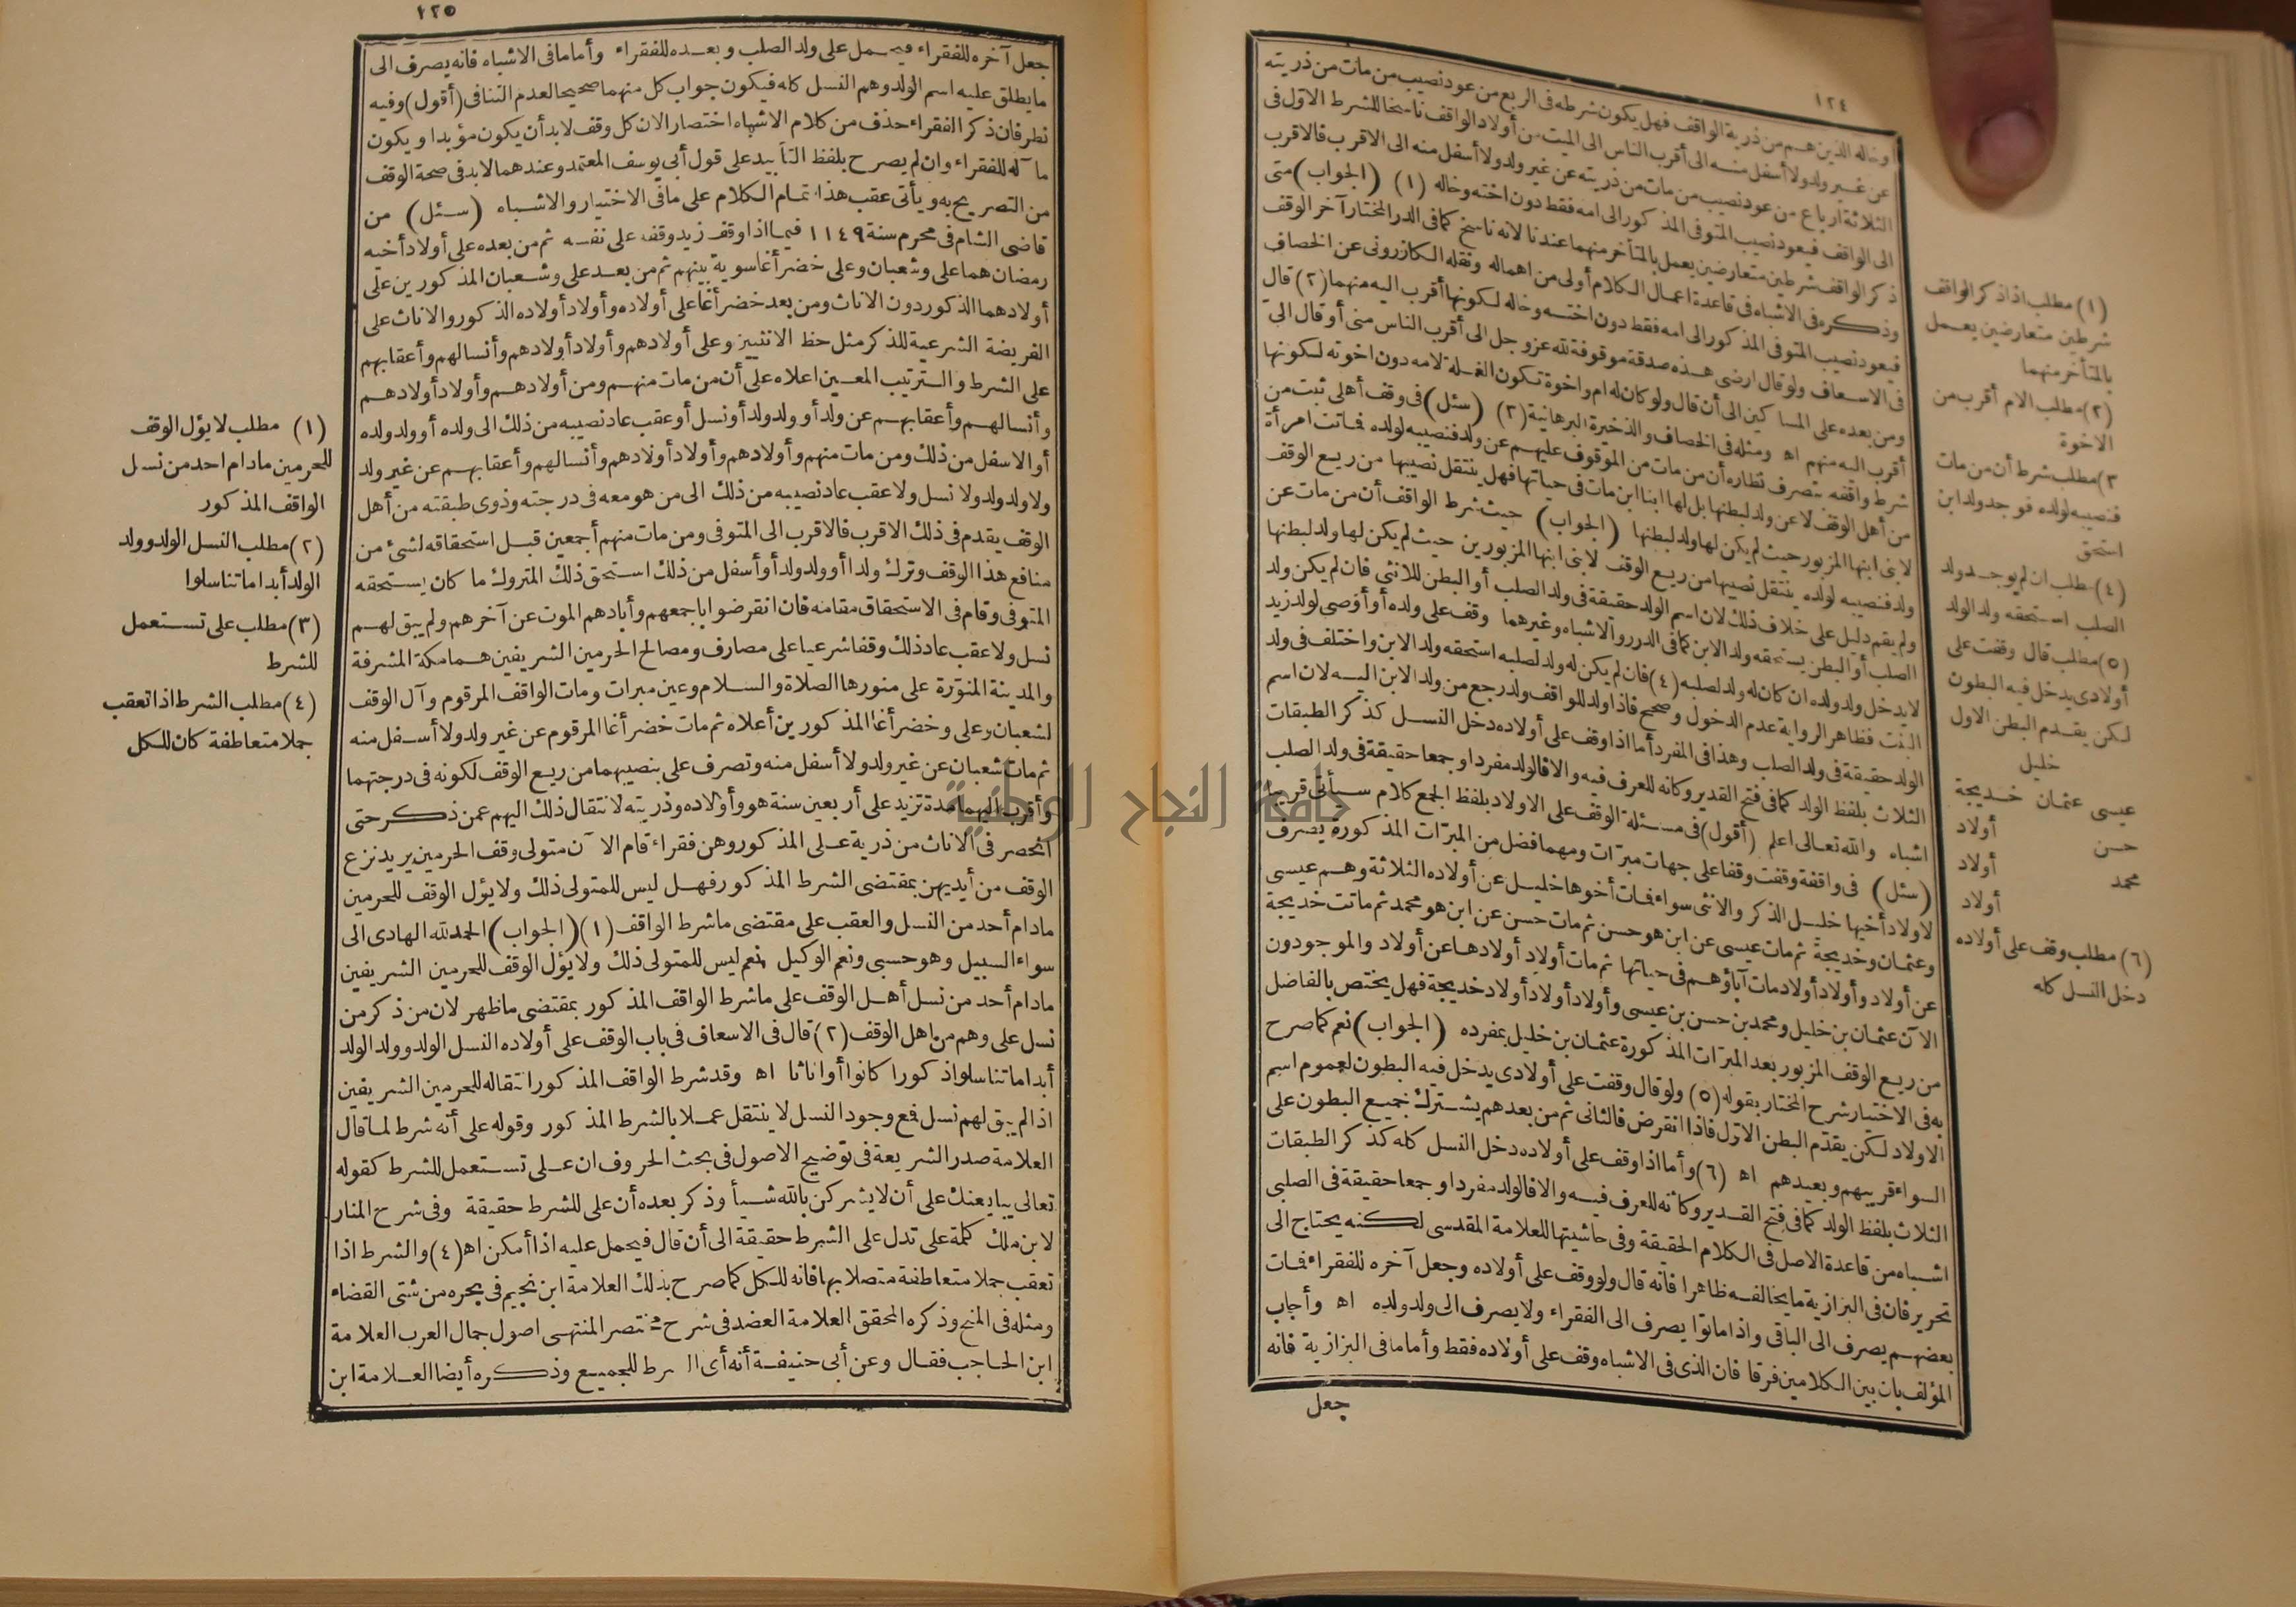 ١٢٤
وخاله الذين هم من ذرية الواقف فهل يكون شرطه فى الربع من عود نصيب من مات من ذريته
عن غير ولد ولا أسفل منه الى أقرب الناس الى الميت من أولاد الواقف ناسخا للشرط الاول فى
الثلاثة ارباع من عود نصيب من مات من ذريته عن غير ولد ولا أسفل منه الى الاقرب فالاقرب
الى الواقف فيعود نصيب المتوفى المذكور الى امه فقط دون اخته وخاله (١) (الجواب) متى
ذكر الواقف شرطين متعارضين يعمل بالمتأخر منهما عندنا لانه ناسخ كما فى الدر المختار آخر الوقف
وذكره فى الاشباه فى قاعدة اعمال الكلام أولى من اهماله ونقله الكازرونى عن الخصاف
فيعود نصيب المتوفى المذكور الى امه فقط دون اخته وخاله لكونها أقرب اليه منهما (٢) قال
فى الاسعاف ولو قال ارضى هذه صدقة موقوفة لله عز وجل الى أقرب الناس منى أو قال الى
ومن بعده على المساكين الى أن قال ولو كان له ام واخوة تكون الغلة لامه دون اخوته لكونها
أقرب اليه منهم اه ومثله فى الخصاف والذخيرة البرهانية (٣) (سئل) فى وقف أهلى ثبت من
شرط واقفه بتصرف نظاره أن من مات من الموقوف عليهم عن ولد فنصيبه لولده فماتت امرأة
من أهل الوقف لا عن ولد لبطنها بل لها ابنا ابن مات فى حياتها فهل ينتقل نصيبها من ريع الوقف
لابنى ابنها المزبور حيث لم يكن لها ولد لبطنها (الجواب) حيث شرط الواقف أن من مات عن
ولد فنصيبه لولده ينتقل نصيبها من ريع الوقف لابنى ابنها المزبورين حيث لم يكن لها ولد لبطنها
ولم يقم دليل على خلاف ذلك لان اسم الولد حقيقة فى ولد الصلب أو البطن للانثى فان لم يكن ولد
الصلب أو البطن يستحقه ولد الابن كما فى الدرر والاشباه وغيرهما وقف على ولده أو أوصى لولد زيد
لا يدخل ولد ولده ان كان له ولد لصلبه (٤) فان لم يكن له ولد لصلبه استحقه ولد الابن واختلف فى ولد
البنت فظاهر الرواية عدم الدخول وصحح فاذا ولد للواقف ولد رجع من ولد الابن اليه لان اسم
الولد حقيقة فى ولد الصلب وهذا فى المفرد أما اذا وقف على أولاده دخل النسل كذكر الطبقات
الثلاث بلفظ الولد كما فى فتح القدير وكانه للعرف فيه والا فالولد مفردا وجمعا حقيقة فى ولد الصلب
اشباه والله تعالى اعلم (أقول) فى مسئلة الوقف على الاولاد بلفظ الجمع كلام سيأتى قريبا
(سئل) فى واقفة وقفت وقفا على جهات مبرّات ومهما فضل من المبرّات المذكورة يصرف
لاولاد أخيها خليل الذكر والانثى سواء فمات أخوها خليل عن أولاده الثلاثة وهم عيسى
وعثمان وخديجة ثم مات عيسى عن ابن هو حسن ثم مات حسن عن ابن هو محمد ثم ماتت خديجة
عن أولاد وأولاد أولاد مات آباؤهم فى حياتها ثم مات أولاد أولادها عن أولاد والموجودون
الآن عثمان بن خليل ومحمد بن حسن بن عيسى وأولاد أولاد أولاد خديجة فهل يختص بالفاضل
من ريع الوقف المزبور بعد المبرّات المذكورة عثمان بن خليل بمفرده (الجواب) نعم كما صرح
به فى الاختيار شرح المختار بقوله (٥) ولو قال وقفت على أولادى يدخل فيه البطون لعموم اسم
الاولاد لكن يقدّم البطن الاوّل فاذا انقرض فالثانى ثم من بعدهم يشترك جميع البطون على
السواء قريبهم وبعيدهم اه (٦) وأما اذا وقف على أولاده دخل النسل كله كذكر الطبقات
الثلاث بلفظ الولد كما فى فتح القدير وكانه للعرف فيه والا فالولد مفردا وجمعا حقيقة فى الصلبى
اشباه من قاعدة الاصل فى الكلام الحقيقة وفى حاشيتها للعلامة المقدسى لكنه يحتاج الى
تحرير فان فى البزازية ما يخالفه ظاهرا فانه قال ولو وقف على أولاده وجعل آخره للفقراء فمات
بعضهم يصرف الى الباقى واذا ماتوا يصرف الى الفقراء ولا يصرف الى ولد ولده اه وأجاب
المؤلف بان بين الكلامين فرقا فان الذى فى الاشباه وقف على أولاده فقط وأما ما فى البزازية فانه
جعل
(١) مطلب اذا ذكر الواقف
شرطين متعارضين يعمل
بالمتأخر منهما
(٢) مطلب الام أقرب من
الاخوة
٣) مطلب شرط أن من مات
فنصيبه لولده فوجد ولد ابن
استحق
(٤) مطلب ان لم يوجد ولد
الصلب استحقه ولد الولد
(٥) مطلب قال وقفت على
أولادى يدخل فيه البطون
لكن يقدم البطن الاول
خليل
عيسى عثمان خديجة
حسن أولاد
محمد أولاد
أولاد
(٦) مطلب وقف على أولاده
دخل النسل كله
١٢٥
جعل آخره للفقراء فيحمل على ولد الصلب وبعده للفقراء وأما ما فى الاشباه فانه يصرف الى
ما يطلق عليه اسم الولد وهم النسل كله فيكون جواب كل منهما صحيحا لعدم التنافى (أقول) وفيه
نظر فان ذكر الفقراء حذف من كلام الاشباه اختصارا لان كل وقف لا بد أن يكون مؤبدا ويكون
مآله للفقراء وان لم يصرح بلفظ التأبيد على قول أبى يوسف المعتمد وعندهما لا بد فى صحة الوقف
من التصريح به ويأتى عقب هذا تمام الكلام على ما فى الاختيار والاشباه (سئل) من
قاضى الشام فى محرم سنة ١١٤٩ فيما اذا وقف زيد وقفه على نفسه ثم من بعده على أولاد أخيه
رمضان هما على وشعبان وعلى خضر أغا سوية بينهم ثم من بعد على وشعبان المذكورين على
أولادهما الذكور دون الاناث ومن بعد خضر أغا على أولاده وأولاد أولاده الذكور والاناث على
الفريضة الشرعية للذكر مثل حظ الانثيين وعلى أولادهم وأولاد أولادهم وأنسالهم وأعقابهم
على الشرط والترتيب المعين اعلاه على أن من مات منهم ومن أولادهم وأولاد أولادهم
وأنسالهم وأعقابهم عن ولد أو ولد ولد أو نسل أو عقب عاد نصيبه من ذلك الى ولده أو ولد ولده
أو الاسفل من ذلك ومن مات منهم وأولادهم وأولاد أولادهم وأنسالهم وأعقابهم عن غير ولد
ولا ولد ولد ولا نسل ولا عقب عاد نصيبه من ذلك الى من هو معه فى درجته وذوى طبقته من أهل
الوقف يقدم فى ذلك الاقرب فالاقرب الى المتوفى ومن مات منهم أجمعين قبل استحقاقه لشئ من
منافع هذا الوقف وترك ولدا أو ولد ولد أو أسفل من ذلك استحق ذلك المتروك ما كان يستحقه
المتوفى وقام فى الاستحقاق مقامه فان انقرضوا باجمعهم وأبادهم الموت عن آخرهم ولم يبق لهم
نسل ولا عقب عاد ذلك وقفا شرعيا على مصارف ومصالح الحرمين الشريفين هما مكة المشرفة
والمدينة المنوّرة على منورها الصلاة والسلام وعين مبرات ومات الواقف المرقوم وآل الوقف
لشعبان وعلى وخضر أغا المذكورين أعلاه ثم مات خضر أغا المرقوم عن غير ولد ولا أسفل منه
ثم مات شعبان عن غير ولد ولا أسفل منه وتصرف على بنصيبهما من ريع الوقف لكونه فى درجتهما
وأقرب اليهما مدة تزيد على أربعين سنة هو وأولاده وذريته لانتقال ذلك اليهم عمن ذكر حتى
انحصر فى الاناث من ذرية على المذكور وهن فقراء قام الآن متولى وقف الحرمين يريد نزع
الوقف من أيديهن بمقتضى الشرط المذكور فهل ليس للمتولى ذلك ولا يؤل الوقف للحرمين
مادام أحد من النسل والعقب على مقتضى ما شرط الواقف (١) (الجواب) الحمد لله الهادى الى
سواء السبيل وهو حسبى ونعم الوكيل نعم ليس للمتولى ذلك ولا يؤل الوقف للحرمين الشريفين
مادام أحد من نسل أهل الوقف على ما شرط الواقف المذكور بمقتضى ما ظهر لان من ذكر من
نسل على وهم من اهل الوقف (٢) قال فى الاسعاف فى باب الوقف على أولاده النسل الولد وولد الولد
أبدا ما تناسلوا ذكورا كانوا أو اناثا اه وقد شرط الواقف المذكور انتقاله للحرمين الشريفين
اذا لم يبق لهم نسل فمع وجود النسل لا ينتقل عملا بالشرط المذكور وقوله على أنه شرط لما قال
العلامة صدر الشريعة فى توضيح الاصول فى بحث الحروف ان على تستعمل للشرط كقوله
تعالى يبايعنك على أن لا يشركن بالله شيأ وذكر بعده أن على للشرط حقيقة وفى شرح المنار
لابن ملك كلمة على تدل على الشرط حقيقة الى أن قال فيحمل عليه اذا أمكن اه (٤) والشرط اذا
تعقب جملا متعاطفة متصلا بها فانه للكل كما صرح بذلك العلامة ابن نجيم فى بحره من شتى القضاء
ومثله فى المنح وذكره المحقق العلامة العضد فى شرح مختصر المنتهى اصول جمال العرب العلامة
ابن الحاجب فقال وعن أبى حنيفة أنه أى الشرط للجميع وذكره أيضا العلامة ابن
(١) مطلب لا يؤل الوقف
للحرمين مادام احد من نسل
الواقف المذكور
(٢) مطلب النسل الولد وولد
الولد أبدا ما تناسلوا
(٣) مطلب على تستعمل
للشرط
(٤) مطلب الشرط اذا تعقب
جملا متعاطفة كان للكل
جامعة النجاح الوطنية